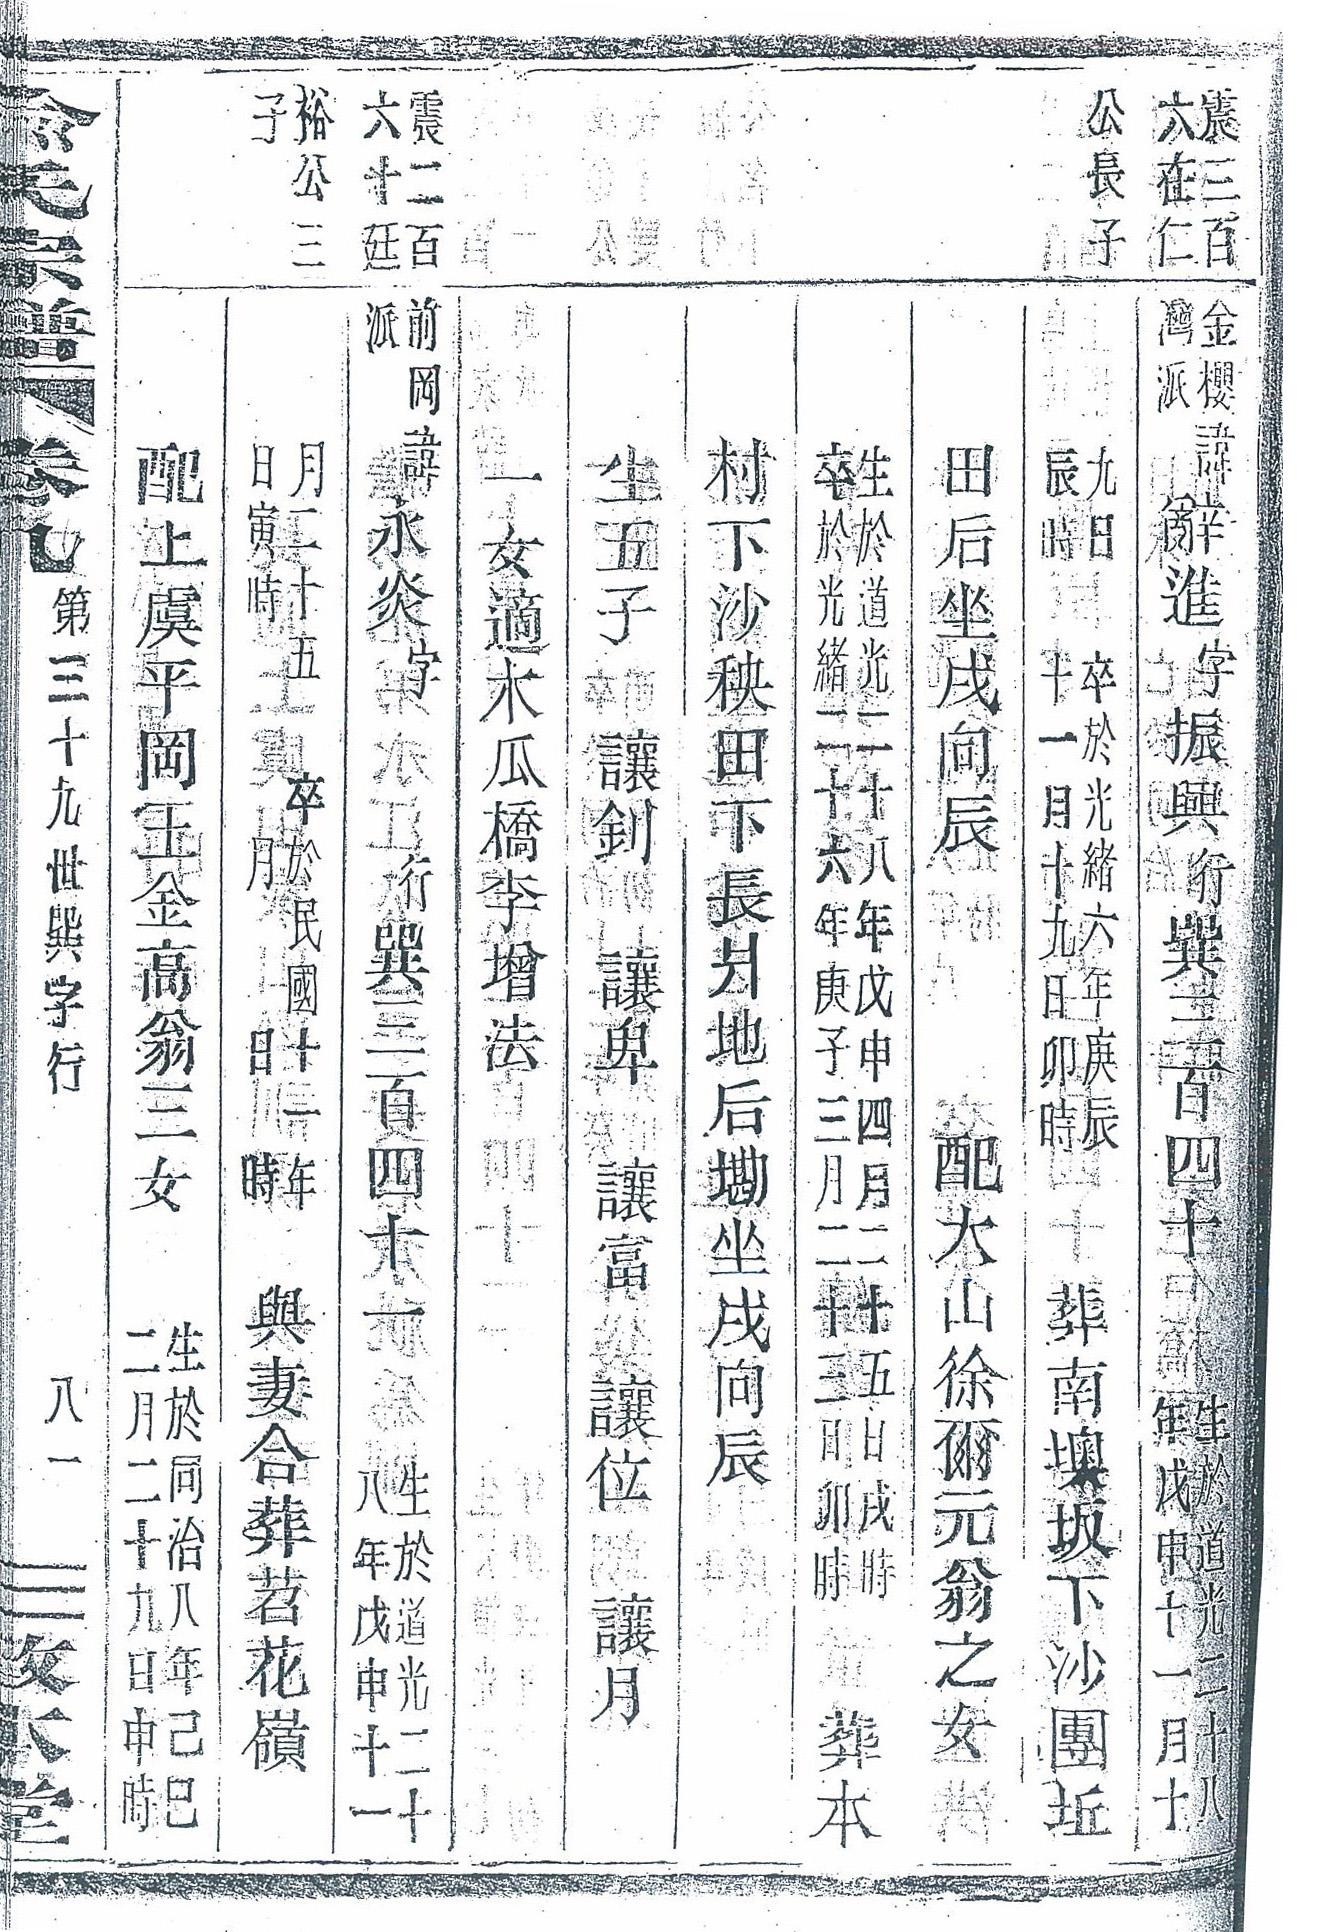 震三百
六在仁
公長子
金櫻
灣派
諱辛
進
字
振興
行
巽三百四十
生於道光二十八
年戊申十一月十
九日
辰時
卒於光緒六年庚辰
十一月十九日卯時
葬南墺坂下沙團坵
田后坐戌向辰
配大山徐爾元翁之女
生於道光二十八年戊申四月二十五日戌時
卒於光緒二十六年庚子三月二十三日卯時
葬本
村下沙秧田下長爿地后墈坐戌向辰
生五子 讓釗 讓卑 讓富 讓位 讓月
一女適木瓜橋李增法
震二百
六十廷
裕公三
子
前岡
派
諱
永炎
字
行
巽三百四十一
生於道光二十
八年戊申十一
月二十五
日寅時
卒於民國十一年
月 日 時
與妻合葬苕花嶺
配上虞平岡王金高翁三女
生於同治八年己巳
二月二十九日申時
俞氏宗譜 卷九 第三十九世巽字行 八一 敦本堂